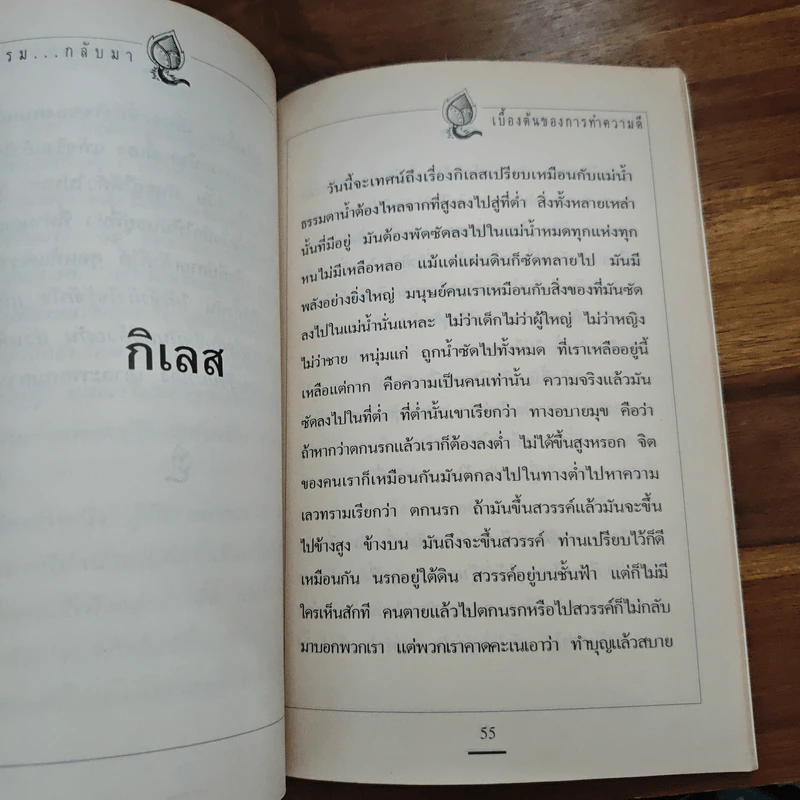 รม...กลับมา
กิเลส
เบื้องต้นของการทำความดี
วันนี้จะเทศน์ถึงเรื่องกิเลสเปรียบเหมือนกับแม่น้ำ
ธรรมดาน้ำต้องไหลจากที่สูงลงไปสู่ที่ต่ำ สิ่งทั้งหลายเหล่า
นั้นที่มีอยู่ มันต้องพัดซัดลงไปในแม่น้ำหมดทุกแห่งทุก
หนไม่มีเหลือหลอ แม้แต่แผ่นดินก็ซัดทลายไป มันมี
พลังอย่างยิ่งใหญ่ มนุษย์คนเราเหมือนกับสิ่งของที่มันซัด
ลงไปในแม่น้ำนั่นแหละ ไม่ว่าเด็กไม่ว่าผู้ใหญ่ ไม่ว่าหญิง
ไม่ว่าชาย หนุ่มแก่ ถูกน้ำซัดไปทั้งหมด ที่เราเหลืออยู่นี้
เหลือแต่กาก คือความเป็นคนเท่านั้น ความจริงแล้วมัน
ซัดลงไปในที่ต่ำ ที่ต่ำนั้นเขาเรียกว่า ทางอบายมุข คือว่า
ถ้าหากว่าตกนรกแล้วเราก็ต้องลงต่ำ ไม่ได้ขึ้นสูงหรอก จิต
ของคนเราก็เหมือนกันมันตกลงไปในทางต่ำไปหาความ
เลวทรามเรียกว่า ตกนรก ถ้ามันขึ้นสวรรค์แล้วมันจะขึ้น
ไปข้างสูง ข้างบน มันถึงจะขึ้นสวรรค์ ท่านเปรียบไว้ก็ดี
เหมือนกัน นรกอยู่ใต้ดิน สวรรค์อยู่บนชั้นฟ้า แต่ก็ไม่มี
ใครเห็นสักที คนตายแล้วไปตกนรกหรือไปสวรรค์ก็ไม่กลับ
มาบอกพวกเรา แต่พวกเราคาดคะเนเอาว่า ทำบุญแล้วสบาย
55